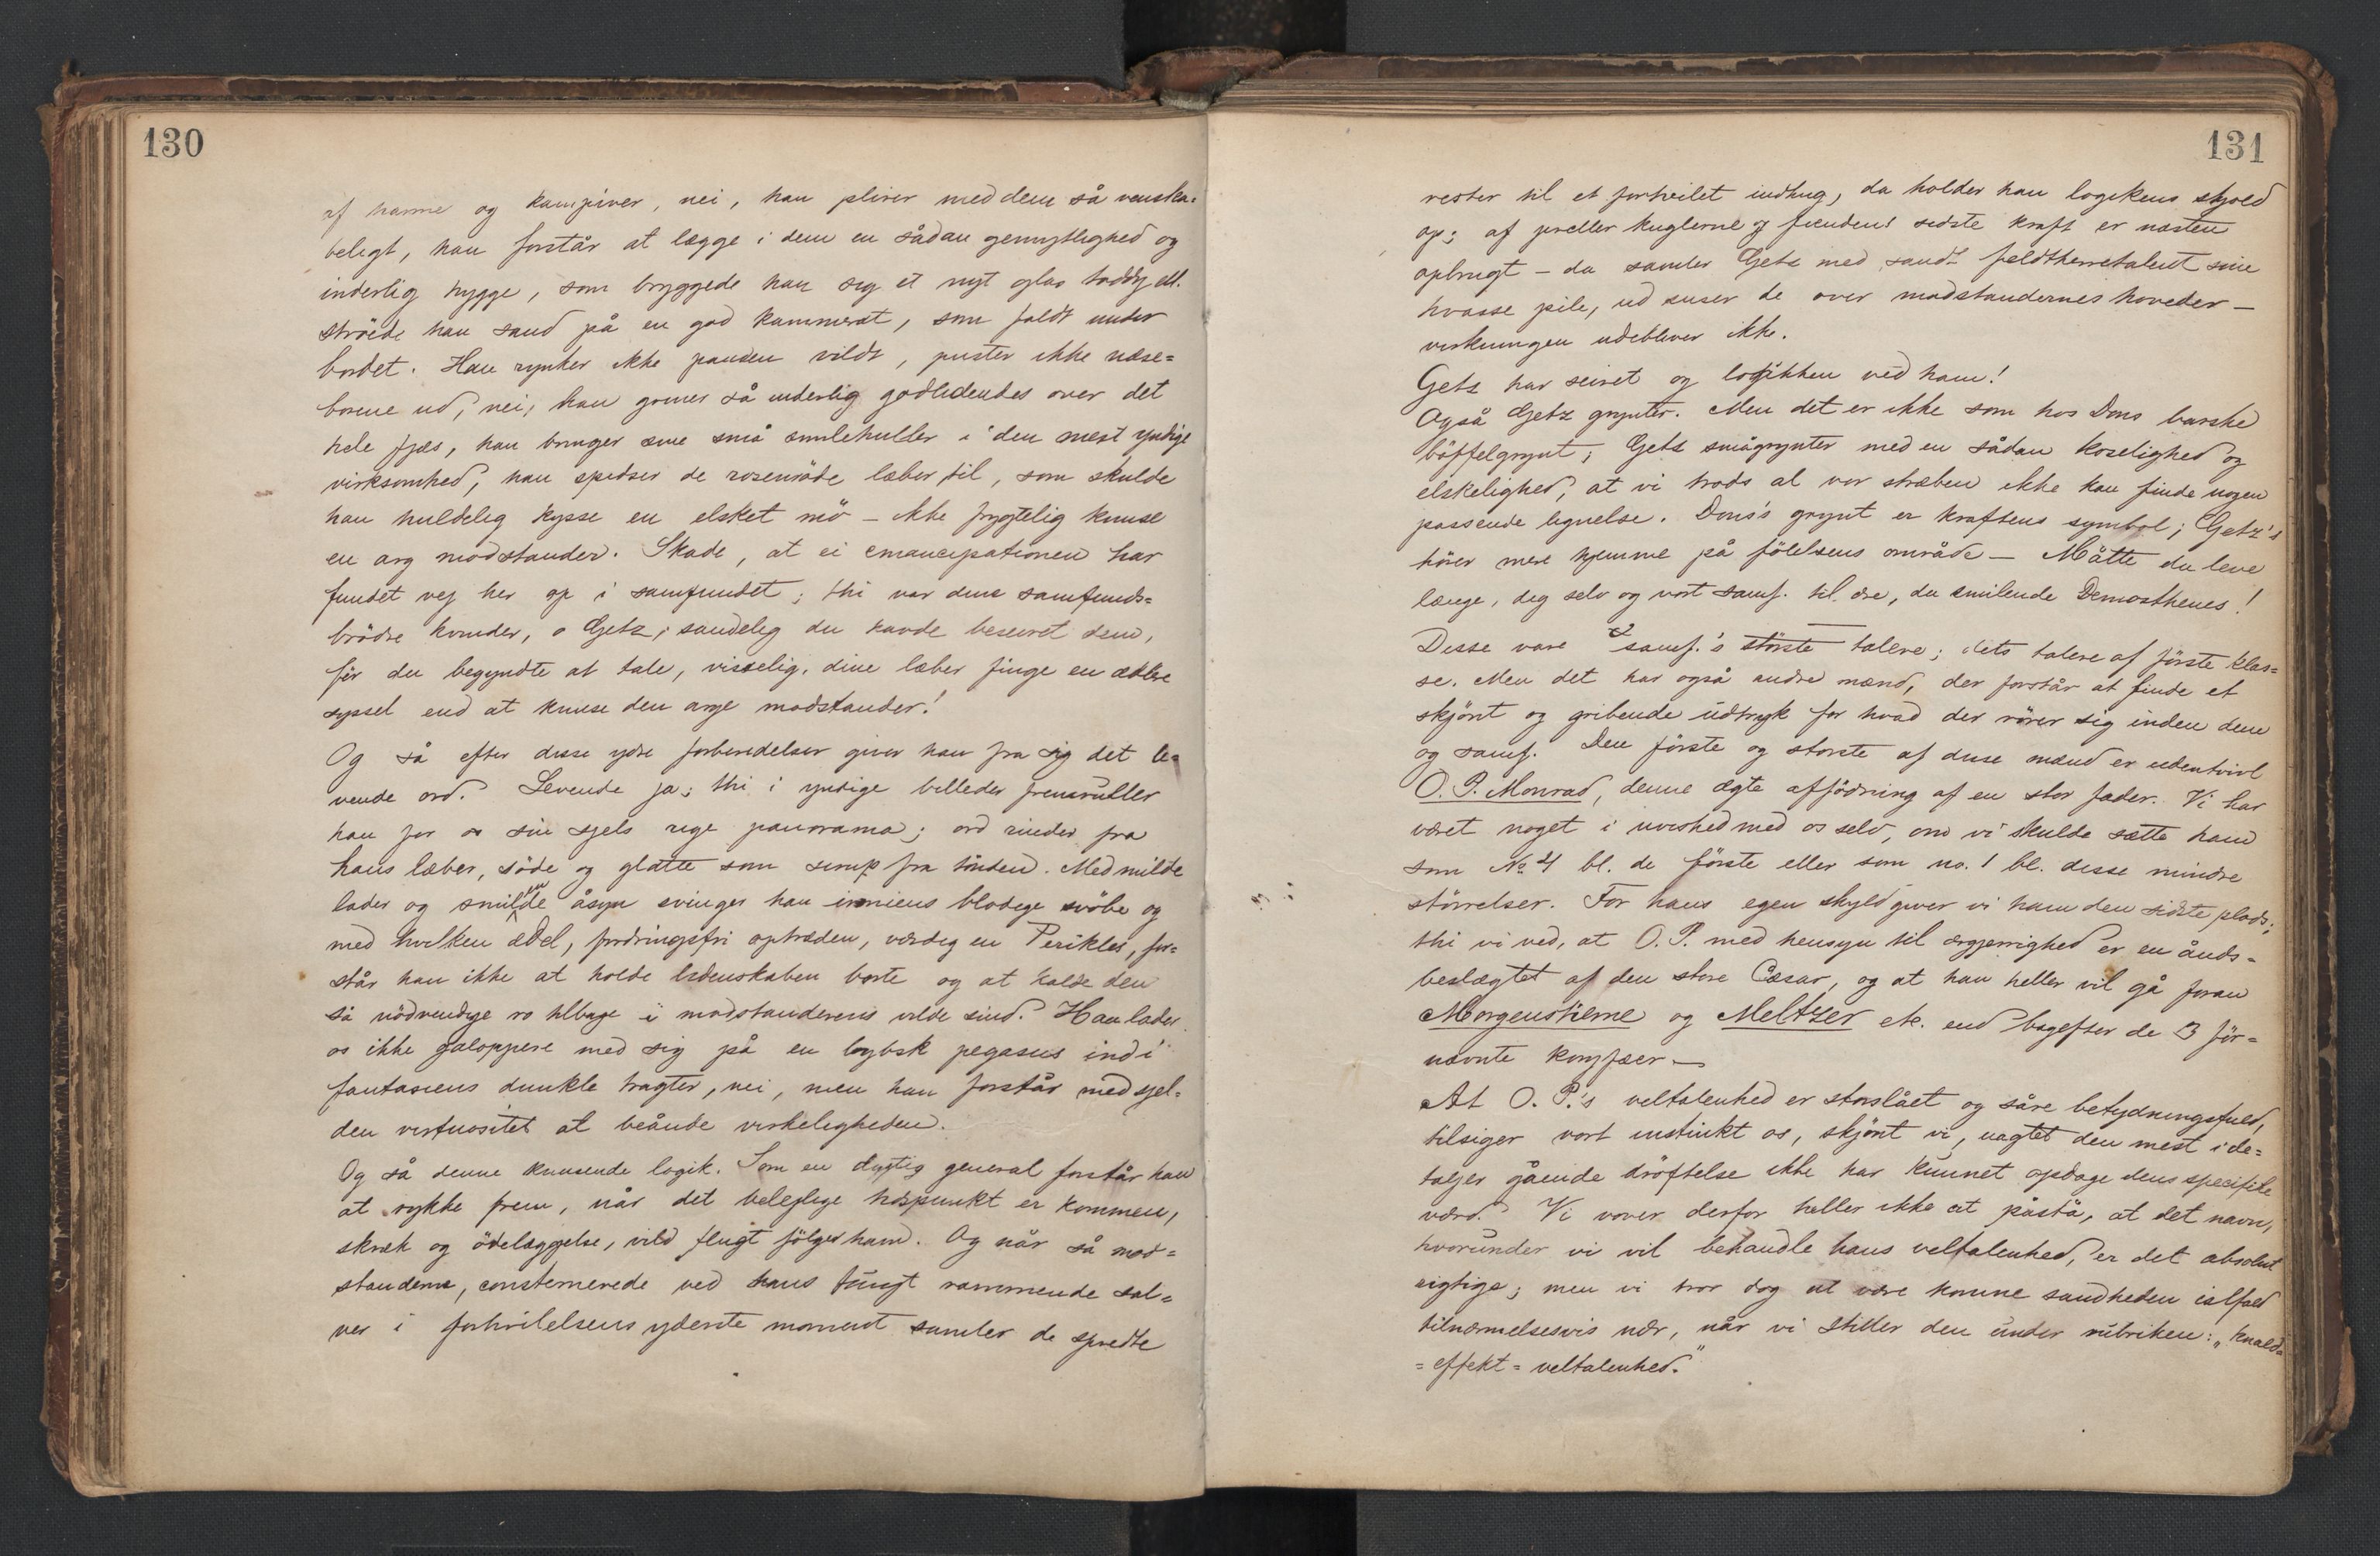 130
af harme og kampiver, nei, han plirer med dem så venska=
beligt, han forstår at lægge i dem en sådan gemytlighed og
inderlig hygge, som bryggede han sig et nyt glas toddy ell.
ströede han sand på en god kammerat, som faldt under
bordet. Han rynker ikke panden vildt, puster ikke næse=
borene ud, nei, han griner så inderlig godlidendes over det
hele fjæs, han bringer sine små smilehuller i den mest yndige
virksomhed, han spidser de rosenröde læber til, som skulde
han huldelig kysse en elsket mö – ikke frygtelig knuse
en arg modstander. Skade, at ei emancipationen har
fundet vej her op i samfundet; thi var dine samfunds=
brödre kvinder, o Getz, sandelig du havde beseiret dem,
för du begyndte at tale, visselig, dine læber finge en ædlere
syssel end at knuse den arge modstander!
Og så efter disse ydre forberedelser giver han fra sig det le=
vende ord. Levende ja; thi i yndige billeder fremruller
han for os sin sjels rige panorama; ord rinder fra
hans læber, söde og glatte som sirup fra tönden. Med milde
lader og smilende åsyn svinger han ironiens blodige svöbe og
med hvilken ædel, fordringsfri optræden, værdig en Perikles, for=
står han ikke at holde lidenskaben borte og at kalde den
så nödvendige ro tilbage i modstanderens vilde sind. Han lader
os ikke galoppere med sig på en lybsk pegasus ind i
fantasiens dunkle tragter, nei, men han forstår med sjel=
den virtuositet at beånde virkeligheden.
Og så denne knusende logik. Som en dygtig general forstår han
at rykke frem, når det beleilige tidspunkt er kommen,
skræk og ödelæggelse, vild flugt fölger ham. Og når så mod=
standerne, consternerede ved hans tungt rammende sal=
ver i fortvilelsens yderste moment samler de spredte
131
rester til et fortvilet indhug, da holder han logikens skjold
op; af preller kuglerne og fiendens sidste kraft er næsten
opbrugt – da samler Getz med sandt feldtherretalent sine
hvasse pile, ud suser de over modstandernes hoveder –
virkningen udebliver ikke.
Getz har seiret og logikken ved ham!
Også Getz grynter. Men det er ikke som hos Dons barske
böffelgrynt; Getz smågrynter med en sådan koselighed og
elskelighed, at vi trods al vor stræben ikke kan finde nogen
passende lignelse. Dons's grynt er kraftens symbol; Getz's
hörer mere hjemme på fölelsens område – Måtte du leve
længe, dig selv og vort samf. til ære, du smilende Demosthenes!
Disse vare samf.'s störste talere; dets talere af förste klas=
se. Men det har også andre mænd, der forstår at finde et
skjönt og gribende udtryk for hvad der rörer sig inden dem
og samf. Den förste og störste af disse mænd er udentvivl
O. P. Monrad, denne ægte afföding af en stor fader. Vi har
været noget i uvished med os selv, om vi skulde sætte ham
som No 4 bl. de förste eller som no. 1 bl. disse mindre
störrelser. For hans egen skyld giver vi ham den sidste plads;
thi vi ved, at O. P. med hensyn til ærgjerrighed er en ånds=
beslægtet af den store Cæsar, og at han heller vil gå foran
Morgenstierne og Meltzer etc. end bagefter de 3 för=
nævnte koryfæer –
At O. P.'s veltalenhed er storslået og såre betydningsfuld,
tilsiger vort instinkt os, skjönt vi, uagtet den mest i de=
taljer gående dröftelse ikke har kunnet opdage dens specifike
værd. Vi vover derfor heller ikke at påstå, at det navn,
hvorunder vi vil behandle hans veltalenhed, er det absolut
rigtige; men vi tror dog at være komne sandheden ialfald
tilnærmelsesvis nær, når vi stiller den under rubriken: „knald=
=effekt=veltalenhed."